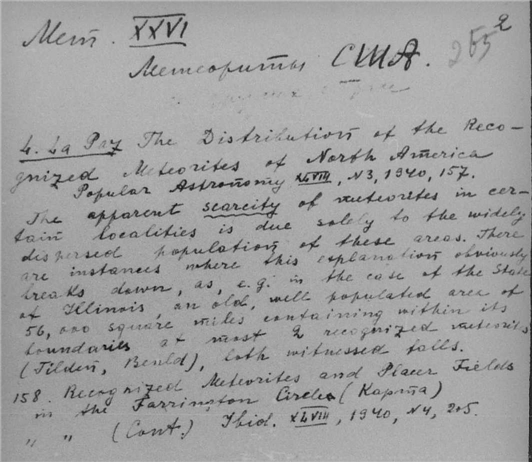 Мет. XXVI
2
Метеориты США. 265
L. La Paz The Distribution of the Reco-
gnized Meteorites of North America
Popular Astronomy XLVIII, N3, 1940, 157.
The apparent scarcity of meteorites in cer-
tain localities is due solely to the widely
dispersed population of these areas. There
are instances where this explanation obviously
breaks down, as, e.g. in the case of the State
of Illinois, an old, well populated area of
56,000 square miles containing within its
boundaries at most 2 recognized meteorites
(Tilden, Benld), both witnessed falls.
158. Recognized Meteorites and Placer Fields
in the Farrington Circle (Карта)
" " (Cont.) Ibid. XLVIII, 1940, N4, 205.